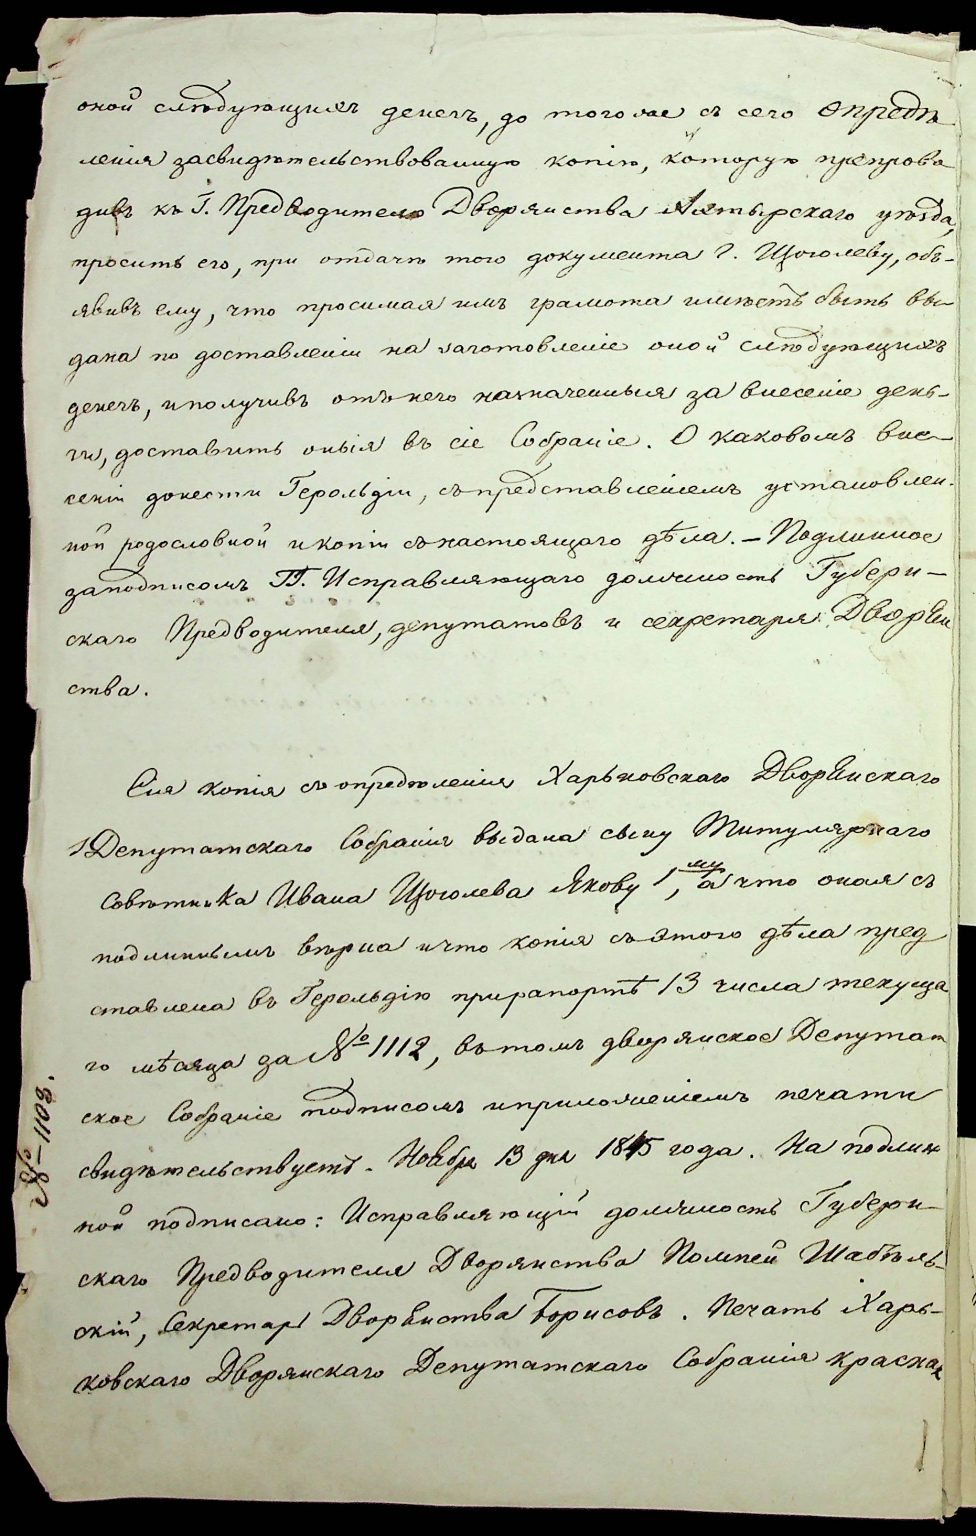 оной слѣдующихъ денегъ, до того же съ сего опредѣ
ленія засвидѣтельствованную копію, которую препрово
дивъ къ Г. Предводителю Дворянства Ахтырскаго уѣзда,
просить его, при отдачѣ того документа Г. Щоголеву, объ-
явивъ ему, что просимая имъ грамота имѣетъ быть вы-
дана по доставленіи на заготовленіе оной слѣдующихъ
денегъ, и получивъ отъ него назначенныя за внесеніе день-
ги, доставить оныя въ сіе Собраніе. О каковомъ вне-
сеніи донести Герольдіи, съ представленіемъ установлен-
ной родословной и копіи съ настоящаго дѣла. – Подлинное
за подписомъ ГГ. Исправляющаго должность Губерн-
скаго Предводителя, депутатовъ и секретаря Дворян
ства.
Сія копія съ опредѣленія Харьковскаго Дворянскаго
Депутатскаго Собранія выдана сыну Титулярнаго
Совѣтника Ивана Щоголева Якову 1му, а что оная съ
подлиннымъ вѣрна и что копія съ этого дѣла пред
ставлена въ Герольдію при рапортѣ 13 числа текуща
го мѣсяца за № 1112, въ томъ дворянское Депутат
ское Собраніе подписомъ и приложеніемъ печати
свидѣтельствуетъ. Ноября 13 дня 1845 года. На подлин
ной подписано: Исправляющій должность Губерн-
скаго Предводителя Дворянства Помпей Шабѣль-
скій, Секретарь Дворянства Борисовъ. Печать Харь-
ковскаго Дворянскаго Депутатскаго Собранія красная
№ – 1103.